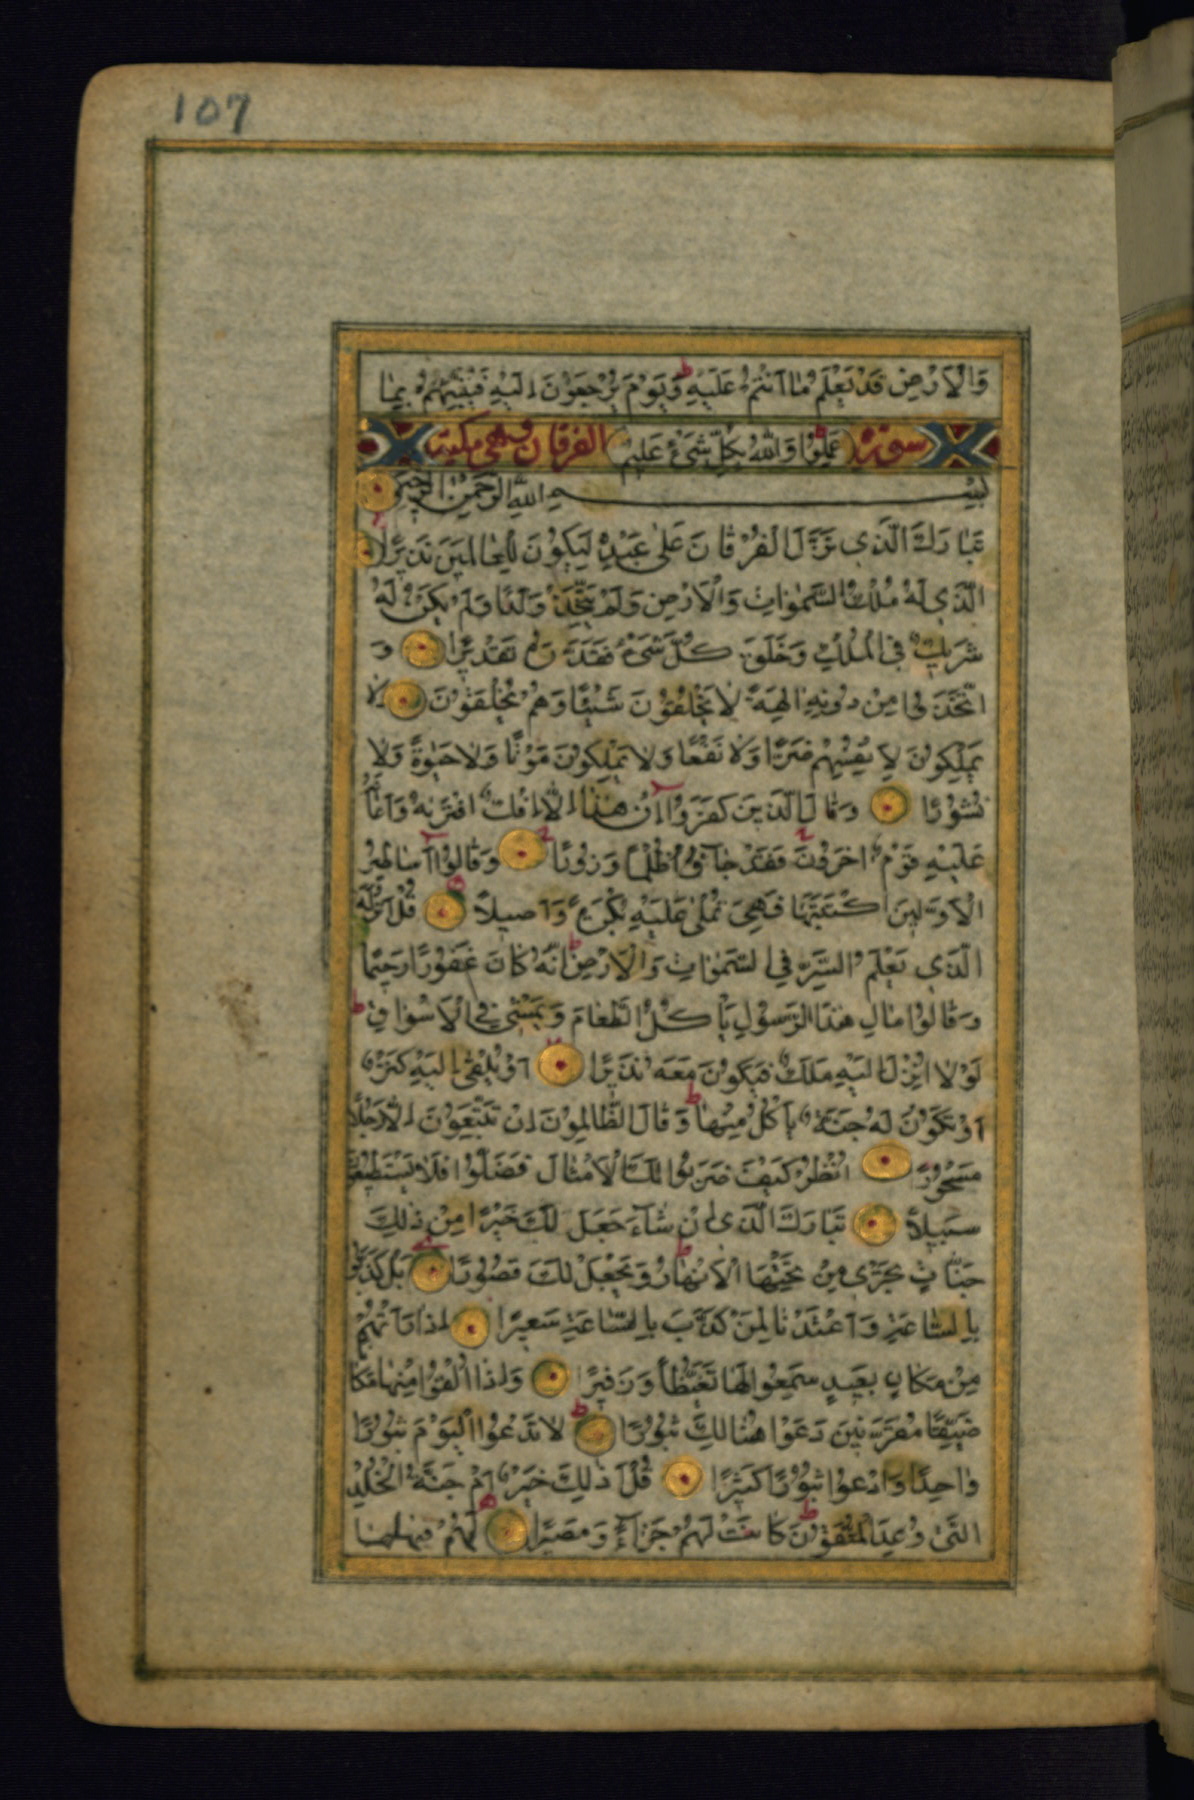 107
وَالْاَرْضِ قَدْ يَعْلَمُ مٰا اَنْتُمْ عَلَيْهِ وَيَوْمَ يُرْجَعُوْنَ اِلَيْهِ فَيُنَبِّئُهُمْ بِمٰا
سورة عَمِلُوْا وَاللّٰهُ بِكُلِّ شَیْءٍ عَلِيْمٌ الفرقان وهي مكية
بِسْمِ اللّٰهِ الرَّحْمٰنِ الرَّحِيْمِ
تَبٰارَكَ الَّذِي نَزَّلَ الْفُرْقٰانَ عَلٰى عَبْدِهٖ لِيَكُوْنَ لِلْعٰالَمِيْنَ نَذِيْرًا
الَّذِي لَهُ مُلْكُ السَّمٰوٰاتِ وَالْاَرْضِ وَلَمْ يَتَّخِذْ وَلَدًا وَلَمْ يَكُنْ لَهُ
شَرِيْكٌ فِي الْمُلْكِ وَخَلَقَ كُلَّ شَیْءٍ فَقَدَّرَهُ تَقْدِيْرًا وَ
اتَّخَذُوْا مِنْ دُوْنِهٖ اٰلِهَةً لٰا يَخْلُقُوْنَ شَيْئًا وَهُمْ يُخْلَقُوْنَ وَلٰا
يَمْلِكُوْنَ لِاَنْفُسِهِمْ ضَرًّا وَلٰا نَفْعًا وَلٰا يَمْلِكُوْنَ مَوْتًا وَلٰا حَيٰوةً وَلٰا
نُشُوْرًا وَقٰالَ الَّذِيْنَ كَفَرُوْا اِنْ هٰذٰا اِلّٰا اِفْكٌ افْتَرٰيهُ وَاَعٰانَهُ
عَلَيْهِ قَوْمٌ اٰخَرُوْنَ فَقَدْ جٰآؤُ ظُلْمًا وَزُوْرًا وَقٰالُوْا اَسٰاطِيْرُ
الْاَوَّلِيْنَ اكْتَتَبَهٰا فَهِيَ تُمْلٰى عَلَيْهِ بُكْرَةً وَاَصِيْلًا قُلْ اَنْزَلَهُ
الَّذِي يَعْلَمُ السِّرَّ فِي السَّمٰوٰاتِ وَالْاَرْضِ اِنَّهُ كٰانَ غَفُوْرًا رَحِيْمًا
وَقٰالُوْا مٰالِ هٰذَا الرَّسُوْلِ يَاْكُلُ الطَّعٰامَ وَيَمْشِي فِي الْاَسْوٰاقِ
لَوْلٰا اُنْزِلَ اِلَيْهِ مَلَكٌ فَيَكُوْنَ مَعَهُ نَذِيْرًا اَوْ يُلْقٰى اِلَيْهِ كَنْزٌ
اَوْ تَكُوْنُ لَهُ جَنَّةٌ يَاْكُلُ مِنْهٰا وَقٰالَ الظّٰالِمُوْنَ اِنْ تَتَّبِعُوْنَ اِلّٰا رَجُلًا
مَسْحُوْرًا اُنْظُرْ كَيْفَ ضَرَبُوْا لَكَ الْاَمْثٰالَ فَضَلُّوْا فَلٰا يَسْتَطِيْعُوْنَ
سَبِيْلًا تَبٰارَكَ الَّذِي اِنْ شٰآءَ جَعَلَ لَكَ خَيْرًا مِنْ ذٰلِكَ
جَنّٰاتٍ تَجْرِي مِنْ تَحْتِهَا الْاَنْهٰارُ وَيَجْعَلْ لَكَ قُصُوْرًا بَلْ كَذَّبُوْا
بِالسّٰاعَةِ وَاَعْتَدْنٰا لِمَنْ كَذَّبَ بِالسّٰاعَةِ سَعِيْرًا اِذٰا رَاَتْهُمْ
مِنْ مَكٰانٍ بَعِيْدٍ سَمِعُوْا لَهٰا تَغَيُّظًا وَزَفِيْرًا وَاِذٰا اُلْقُوْا مِنْهٰا مَكٰانًا
ضَيِّقًا مُقَرَّنِيْنَ دَعَوْا هُنٰالِكَ ثُبُوْرًا لٰا تَدْعُوا الْيَوْمَ ثُبُوْرًا
وٰاحِدًا وَادْعُوْا ثُبُوْرًا كَثِيْرًا قُلْ اَذٰلِكَ خَيْرٌ اَمْ جَنَّةُ الْخُلْدِ
الَّتِي وُعِدَ الْمُتَّقُوْنَ كٰانَتْ لَهُمْ جَزٰآءً وَمَصِيْرًا لَهُمْ فِيْهٰا مٰا